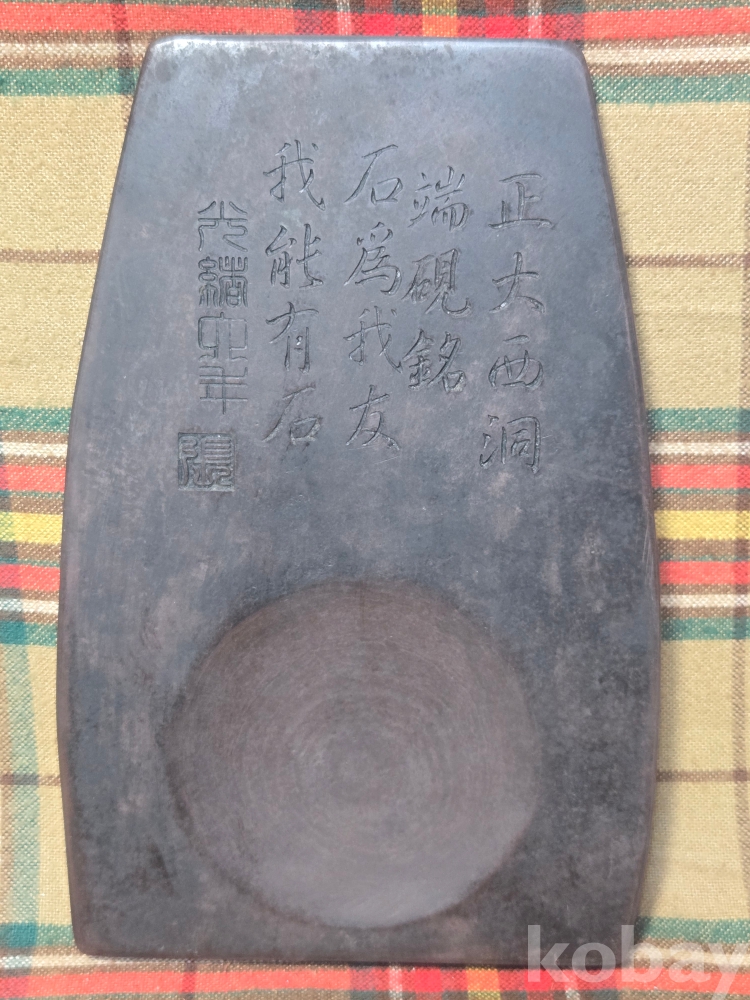 正大西洞
端硯銘
石爲我友
我能有石
光緒六年
kobay